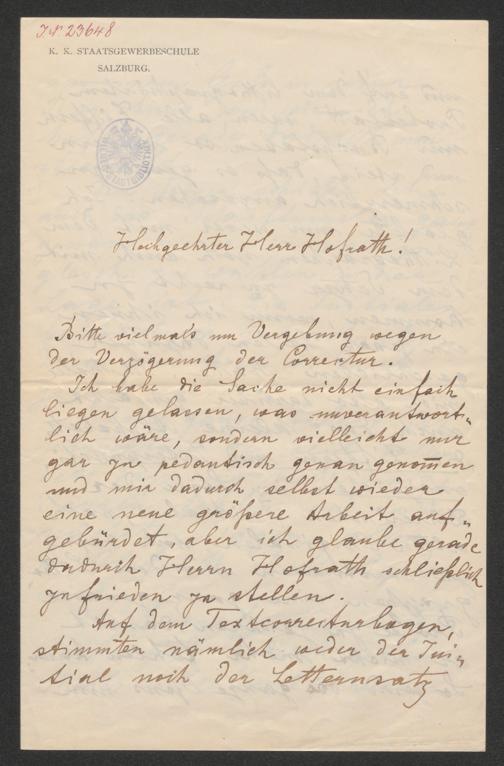 J.N. 23648
K. K. STAATSGEWERBESCHULE
SALZBURG.
Hochgeehrter Herr Hofrath!
Bitte vielmals um Vergebung wegen
der Verzögerung der Correctur.
Ich habe die Sache nicht einfach
liegen gelassen, was unverantwort„
lich wäre, sondern vielleicht nur
gar zu pedantisch genau genom̅en
und mir dadurch selbst wieder
eine neue größere Arbeit auf„
gebürdet, aber ich glaube gerade
dadurch Herrn Hofrath schließlich
zufrieden zu stellen.
Auf dem Textcorrecturbogen,
stimmten nämlich weder der Ini„
tial noch der Letternsatz